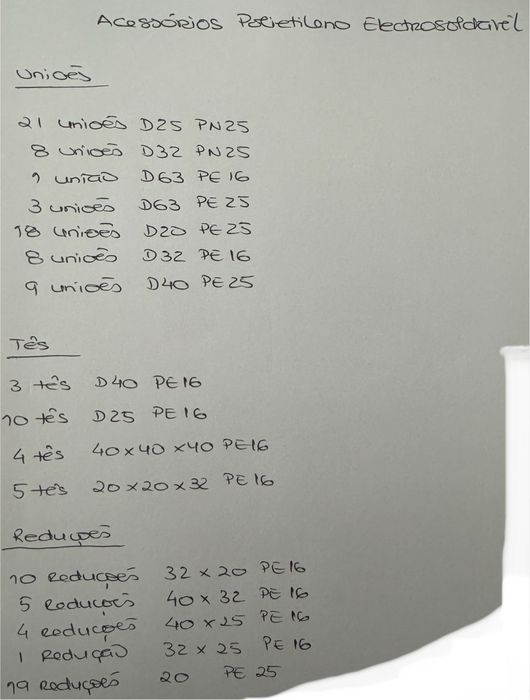 Acessórios Polietileno Electrosoldavél
Uniões
21 uniões D25 PN25
8 uniões D32 PN25
1 união D63 PE 16
3 uniões D63 PE 25
18 uniões D20 PE 25
8 uniões D32 PE 16
9 uniões D40 PE 25
Tês
3 tês D40 PE16
10 tês D25 PE 16
4 tês 40x40x40 PE16
5 tês 20x20x32 PE 16
Reduções
10 Reduções 32 x 20 PE16
5 Reduções 40 x 32 PE 16
4 reduções 40 x 25 PE 16
1 Redução 32 x 25 PE 16
19 Reduções 20 PE 25